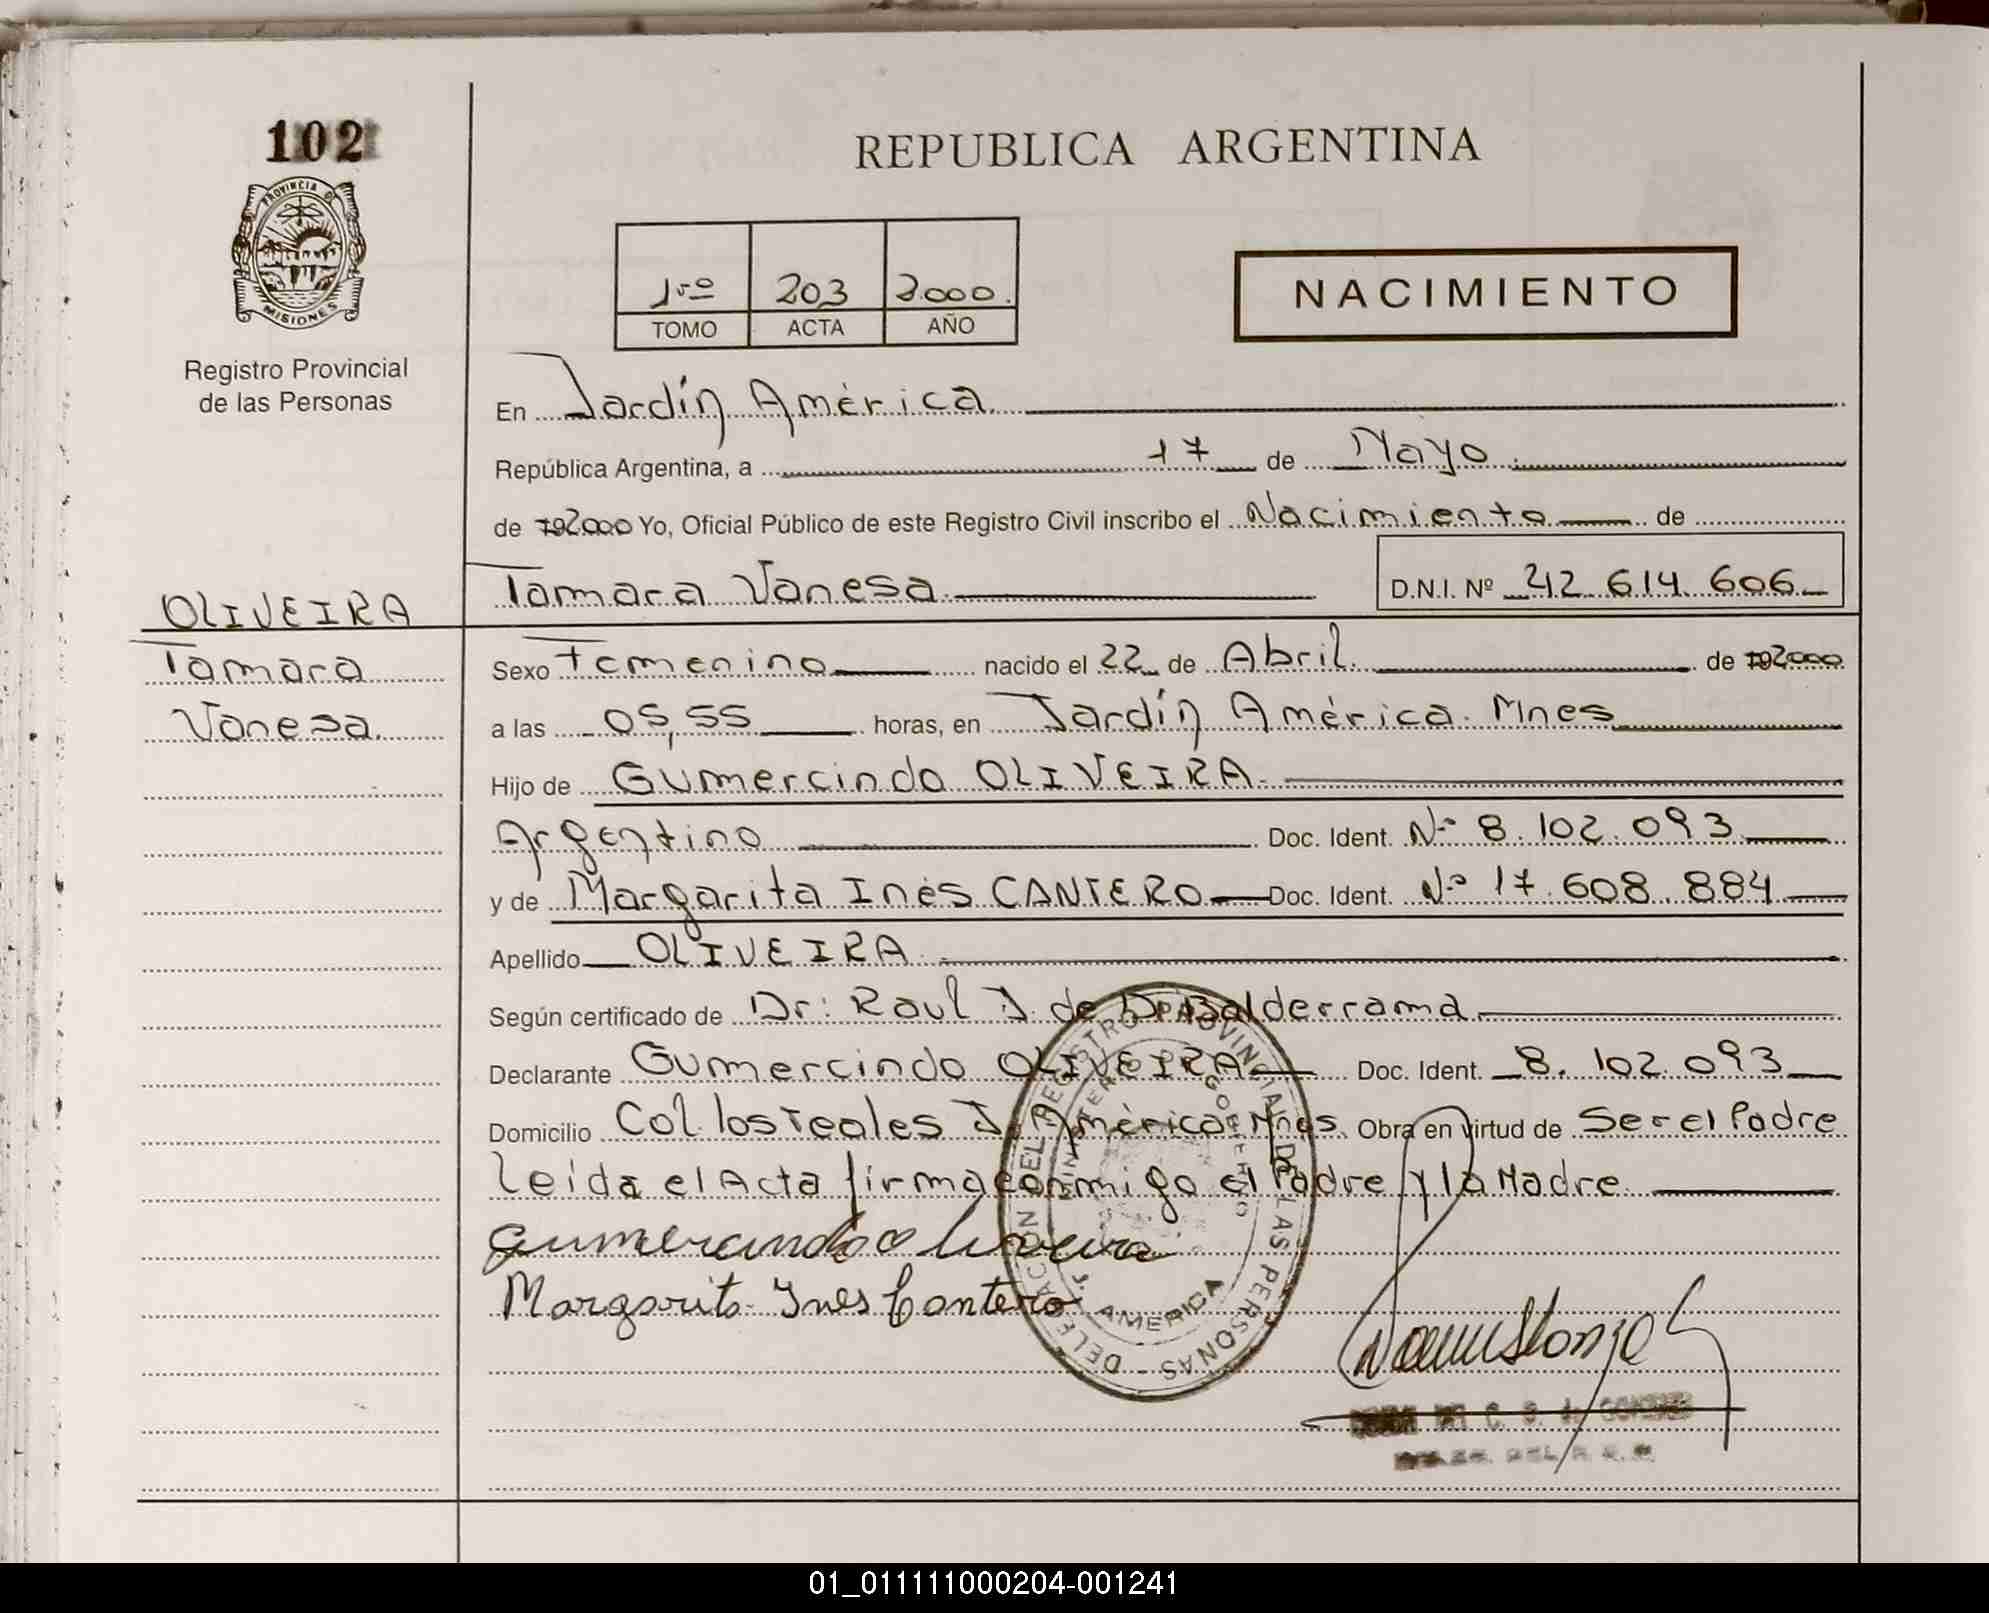 102
PROVINCIA DE
MISIONES
Registro Provincial
de las Personas
REPUBLICA ARGENTINA
1ro 203 2.000.
TOMO ACTA AÑO
NACIMIENTO
En Jardín América
República Argentina, a 17 de Mayo
de 2000 Yo, Oficial Público de este Registro Civil inscribo el Nacimiento de
Tamara Vanesa D.N.I. Nº 42.614.606
OLIVEIRA
Tamara
Vanesa.
Sexo Femenino nacido el 22 de Abril de 2000
a las 05,55 horas, en Jardín América. Mnes
Hijo de Gumercindo OLIVEIRA
Argentino Doc. Ident. Nº 8.102.093
y de Margarita Inés CANTERO Doc. Ident. Nº 17.608.884
Apellido OLIVEIRA
Según certificado de Dr: Raul J. de Balderrama
Declarante Gumercindo OLIVEIRA Doc. Ident. 8.102.093
Domicilio Col. los Teales J. América Mnes. Obra en virtud de Ser el Padre
Leída el Acta firma conmigo el Padre y la Madre
Gumercindo Oliveira
Margarita Ines Cantero
DELEGACION DEL REGISTRO PROVINCIAL DE LAS PERSONAS
J. AMERICA
01_011111000204-001241